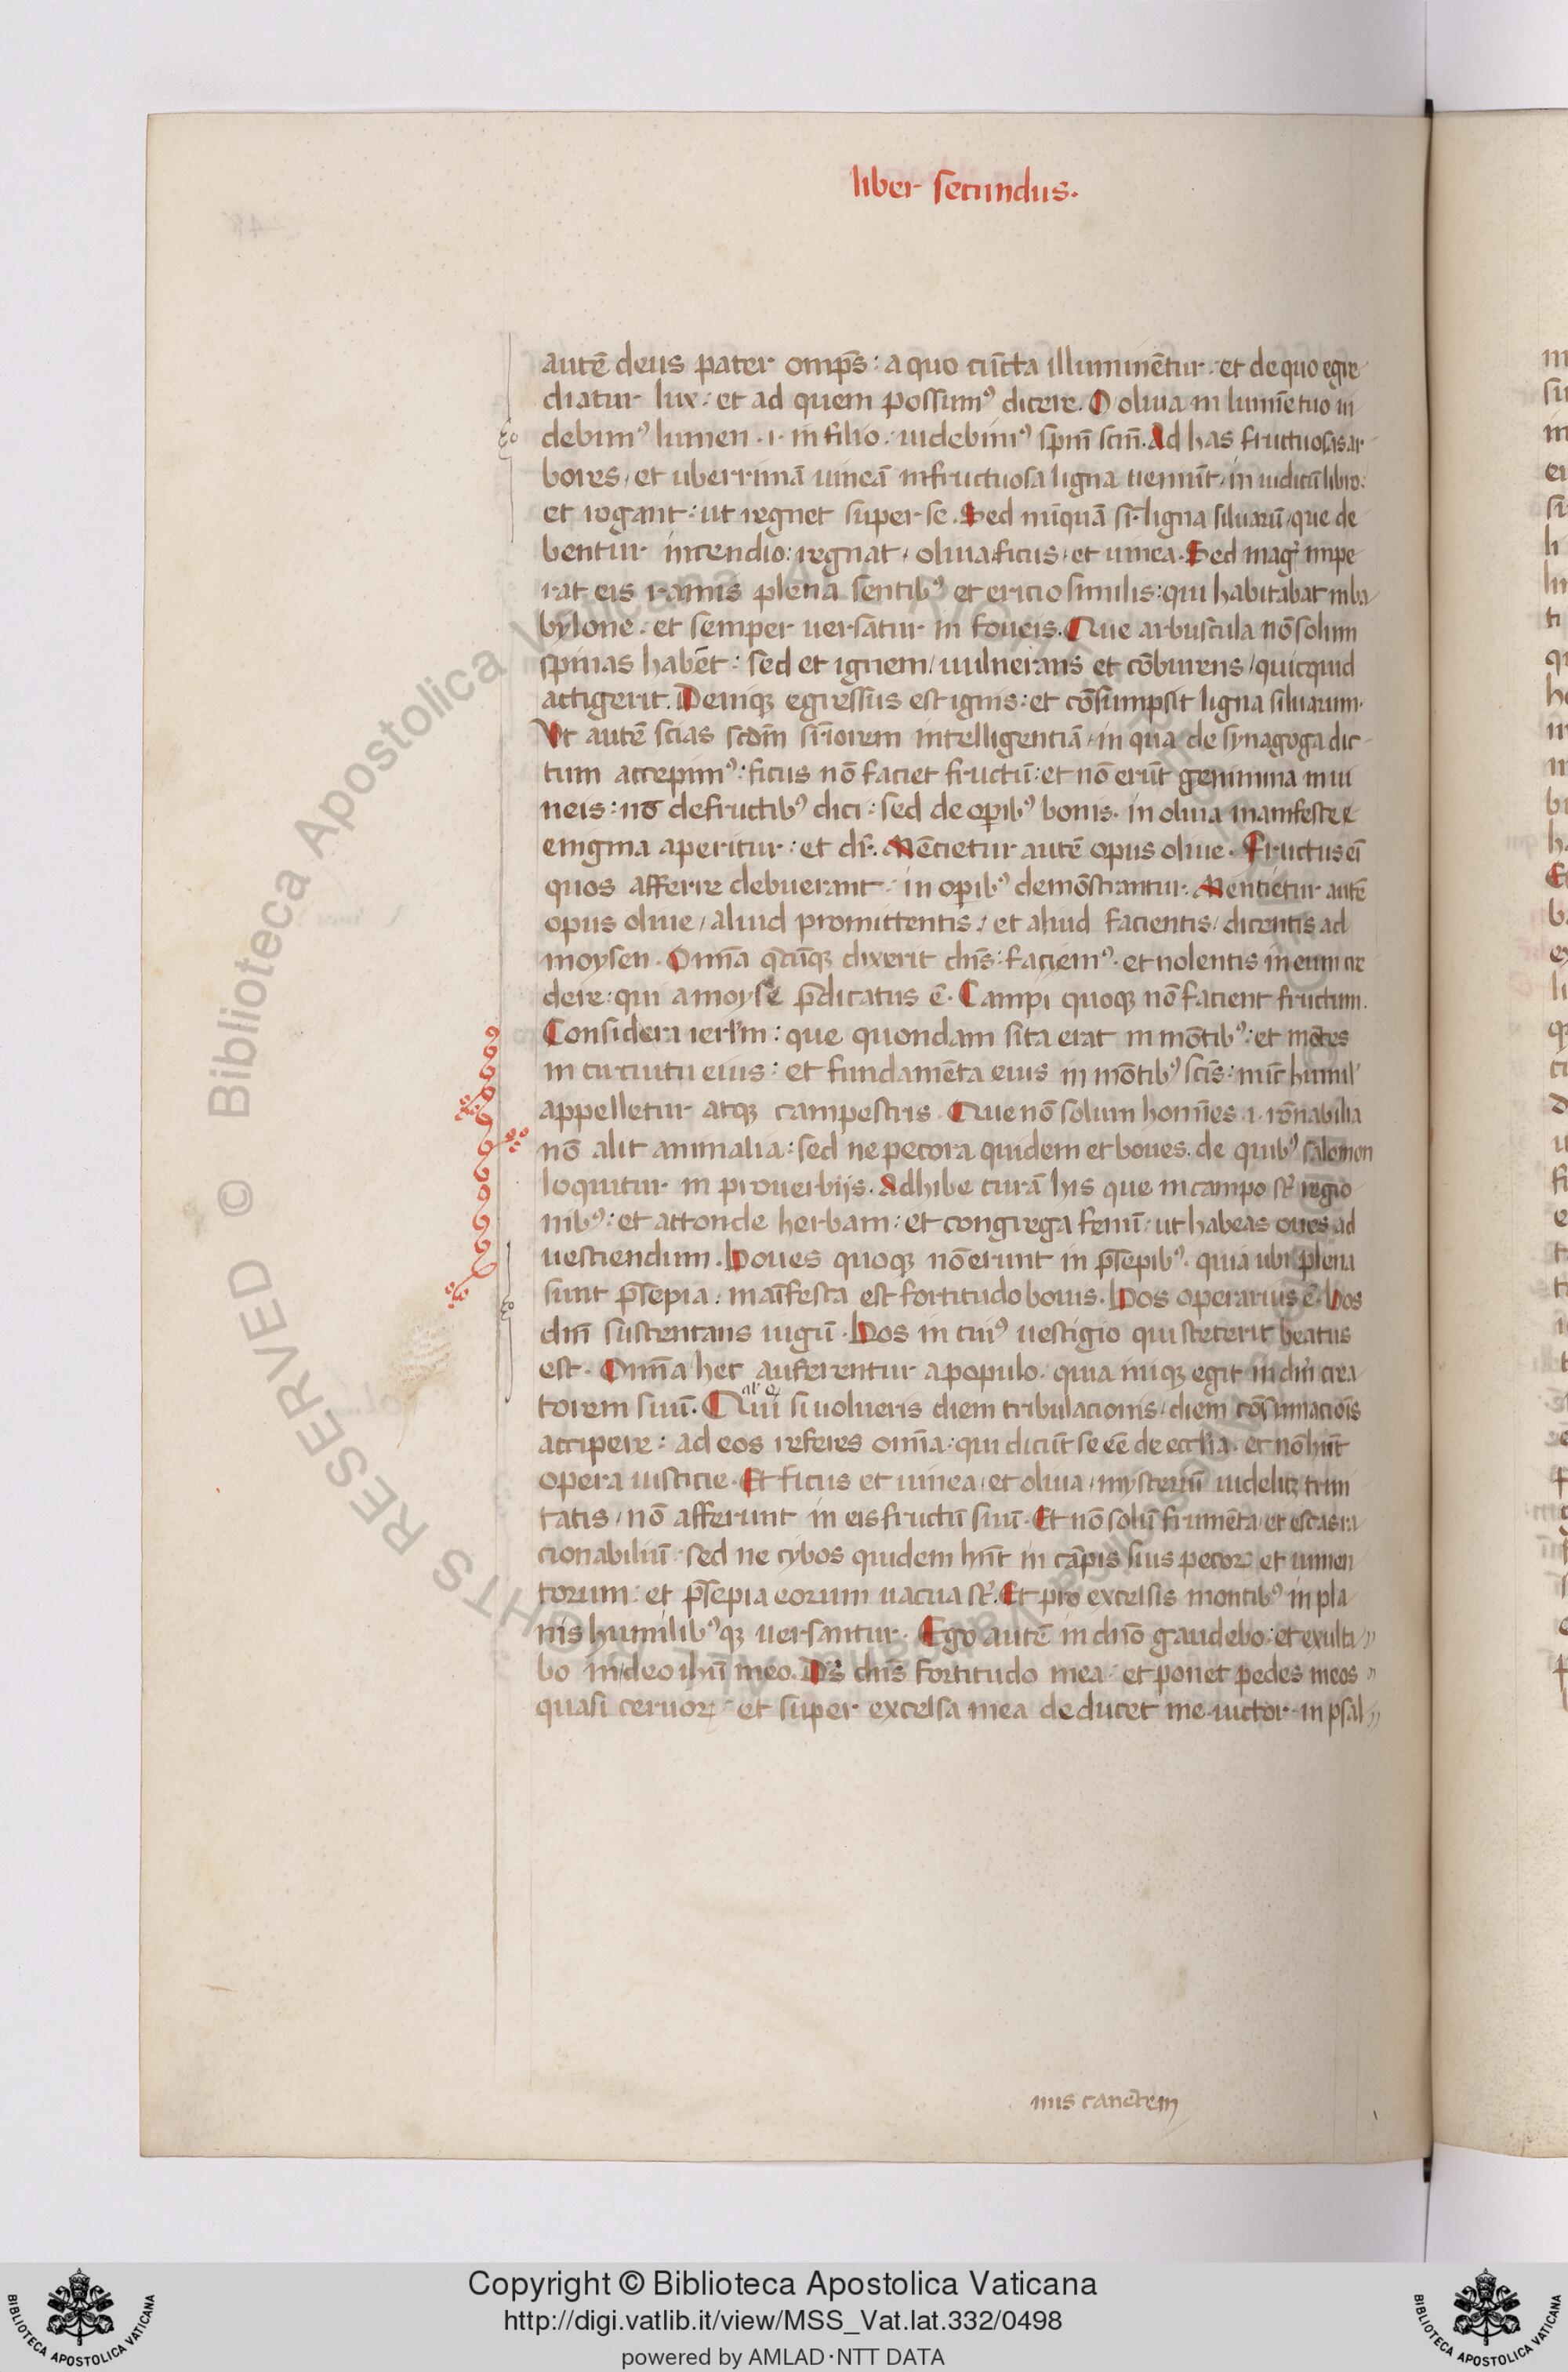 liber secundus.
autē deus pater omp̄s: a quo cūcta illuminētur: et de quo egre
diatur lux: et ad quem possumꝰ dicere. O oliua in lumīe tuo ui
debimꝰ lumen .i. in filio: uidebimꝰ sp̄m sc̄m. Ad has fructuosas ar
bores, et uberrimā uineā infructuosa ligna ueniūt, in iudicū libro:
et rogant: ut regnet super se. Sed nūquā sr̄ ligna siluarū, que de
bentur incendio: regnat, oliua, ficus, et uinea. Sed magꝭ impe
rat eis ramis plena sentibꝰ et ericio similis: qui habitabat in ba
bylone: et semper uersātur in foueis. Que arbuscula nō solum
spinas habēt: sed et ignem, uulnerans et cōburens, quicquid
attigerit. Deniqꝫ egressus est ignis: et cōsumpsit ligna siluarum.
Ut autē scias scdm̄ sr̄iorem intelligentiā, in qua de synagoga dic
tum accepimꝰ: ficus nō faciet fructū: et nō erūt genimina in ui
neis: nō de fructibꝰ dici: sed de opibꝰ bonis. in oliua manifeste e
enigma aperitur: et dr̄. Mētietur autē opus oliue. Fructus eī
quos afferre debuerant: in opibꝰ demōstrantur. Mentietur autē
opus oliue, aliud promittentis, et aliud facientis, dicentis ad
moysen. Omīa qcūqꝫ dixerit dn̄s: faciemꝰ. et nolentis in eum cre
dere: qui a moyse p̄dicatus ē. Campi quoqꝫ nō facient fructum.
Considera ierlm̄: que quondam sita erat in mōtibꝰ: et mōtes
in circuitu eius: et fundamēta eius in mōtibꝰ scīs: nūc humil'
appelletur atqꝫ campestris. Que nō solum homīes .i. rōnabilia
nō alit animalia: sed ne pecora quidem et boues. de quibꝰ salomon
loquitur in prouerbijs. Adhibe curā his que in campo st̄ regio
nibꝰ: et attonde herbam: et congrega fenū: ut habeas oues ad
uestiendum. Boues quoqꝫ nō erunt in p̄sepibꝰ. quia ubi plena
sunt p̄sepia: maīfesta est fortitudo bouis. Bos operarius ē. Bos
dn̄i sustentans iugū. Bos in cuiꝰ uestigio qui steterit beatus
est. Omīa hec auferentur a populo. quia iniqꝫ egit in dn̄m crea
al' Q
torem suū. Qui si uolueris diem tribulacionis, diem cōsūmaciōis
accipere: ad eos referes omīa: qui dicūt se eē de ecclīa. et nō hn̄t
opera iusticie. Et ficus et uinea, et oliua, mysteriū uidelicꝫ trini
tatis, nō afferunt in eis fructū suū. Et nō solū frumēta, et escas ra
cionabiliū: sed ne cybos quidem hn̄t in cāpis suis pecoꝝ et iumen
torum: et p̄sepia eorum uacua st̄. Et pro excelsis montibꝰ in pla
nis humilibꝰqꝫ uersantur. Ego autē in dn̄o gaudebo: et exulta
bo in deo ihū meo. Ds̄ dn̄s fortitudo mea: et ponet pedes meos
quasi ceruoꝝ: et super excelsa mea deducet me uictor in psal
mis canētem
Copyright © Biblioteca Apostolica Vaticana
http://digi.vatlib.it/view/MSS_Vat.lat.332/0498
powered by AMLAD·NTT DATA